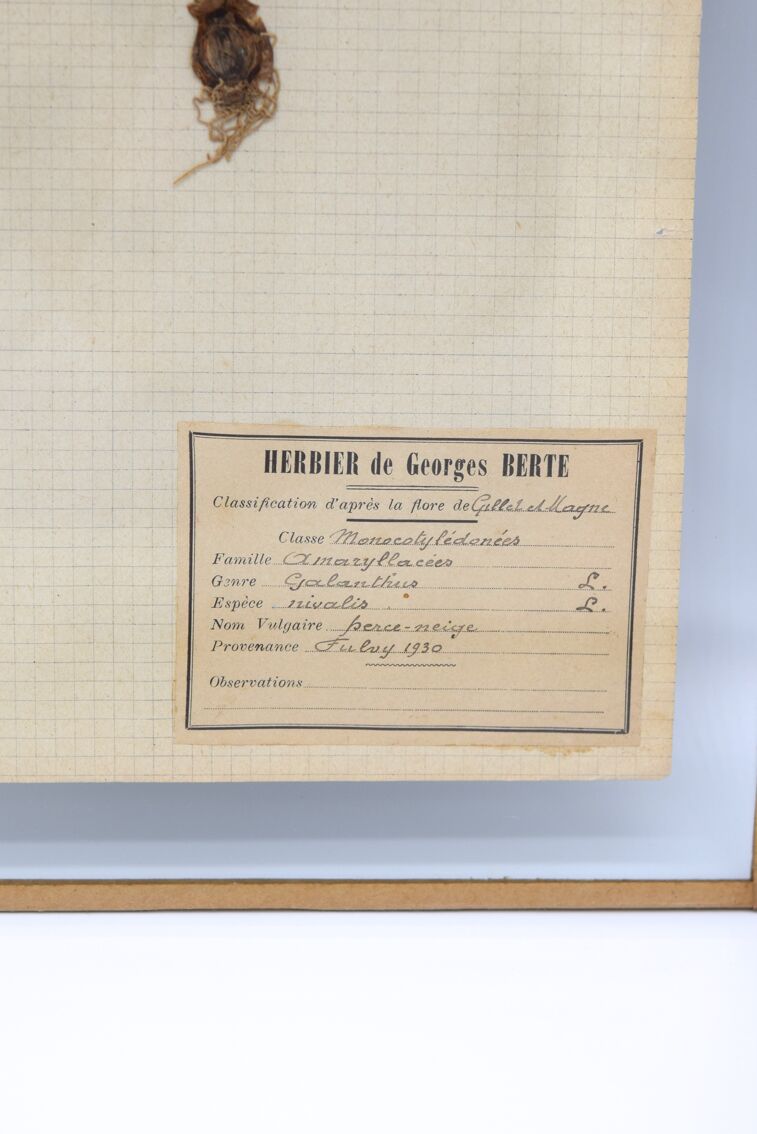 HERBIER de Georges BERTE
Classification d'après la flore de Gillet et Magne
Classe Monocotylédonées
Famille Amaryllacées
Genre Galanthus L.
Espèce nivalis L.
Nom Vulgaire perce-neige
Provenance Fulvy 1930
Observations